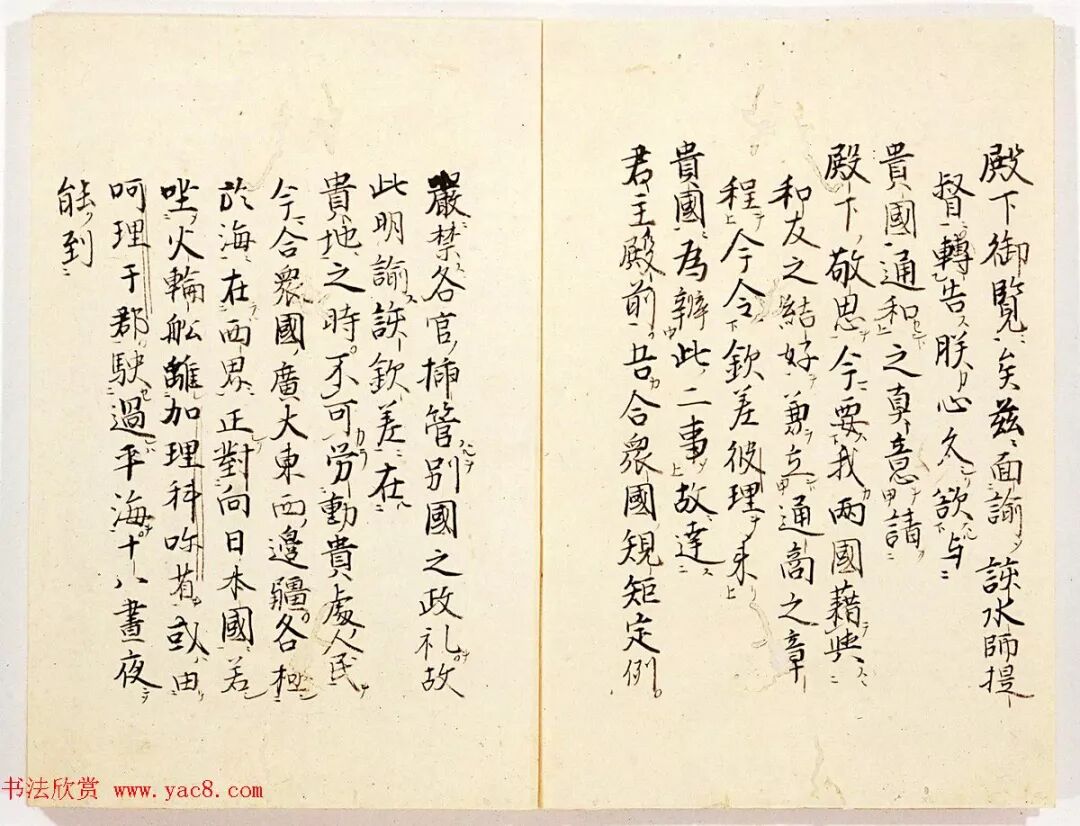 殿下御覧矣茲面諭該水師提
督轉告朕心久欲与
貴國通和之真意請
殿下敬思今要我兩國藉典
和友之結好兼立通商之章
程今令欽差彼理来
貴國為辨此二事故達
君主殿前吾合衆國規矩定例
嚴禁各官揷管別國之政礼故
此明諭該欽差在
貴地之時不可労動貴處人民
今合衆國廣大東西邉疆各極
於海在西界正對向日本國若
坐火輪舩離加理科呅若或由
呵理于郡駛過平海十八晝夜
能到
书法欣赏 www.yac8.com